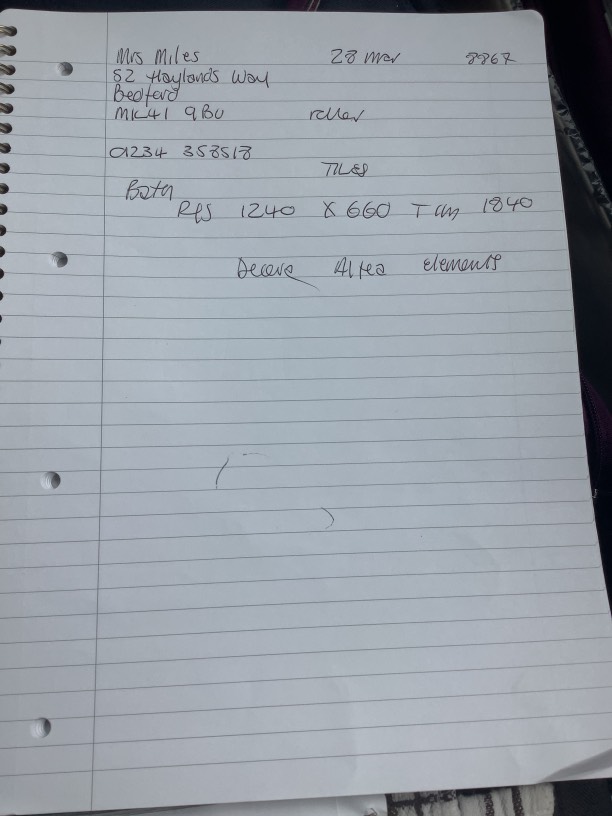 Mrs Miles 28 Mar 8867
52 Haylands Way
Bedford
MK41 9BU roller
01234 358518
TILES
Bath
Rfs 1240 X 660 T 1840
Decora Altea elements